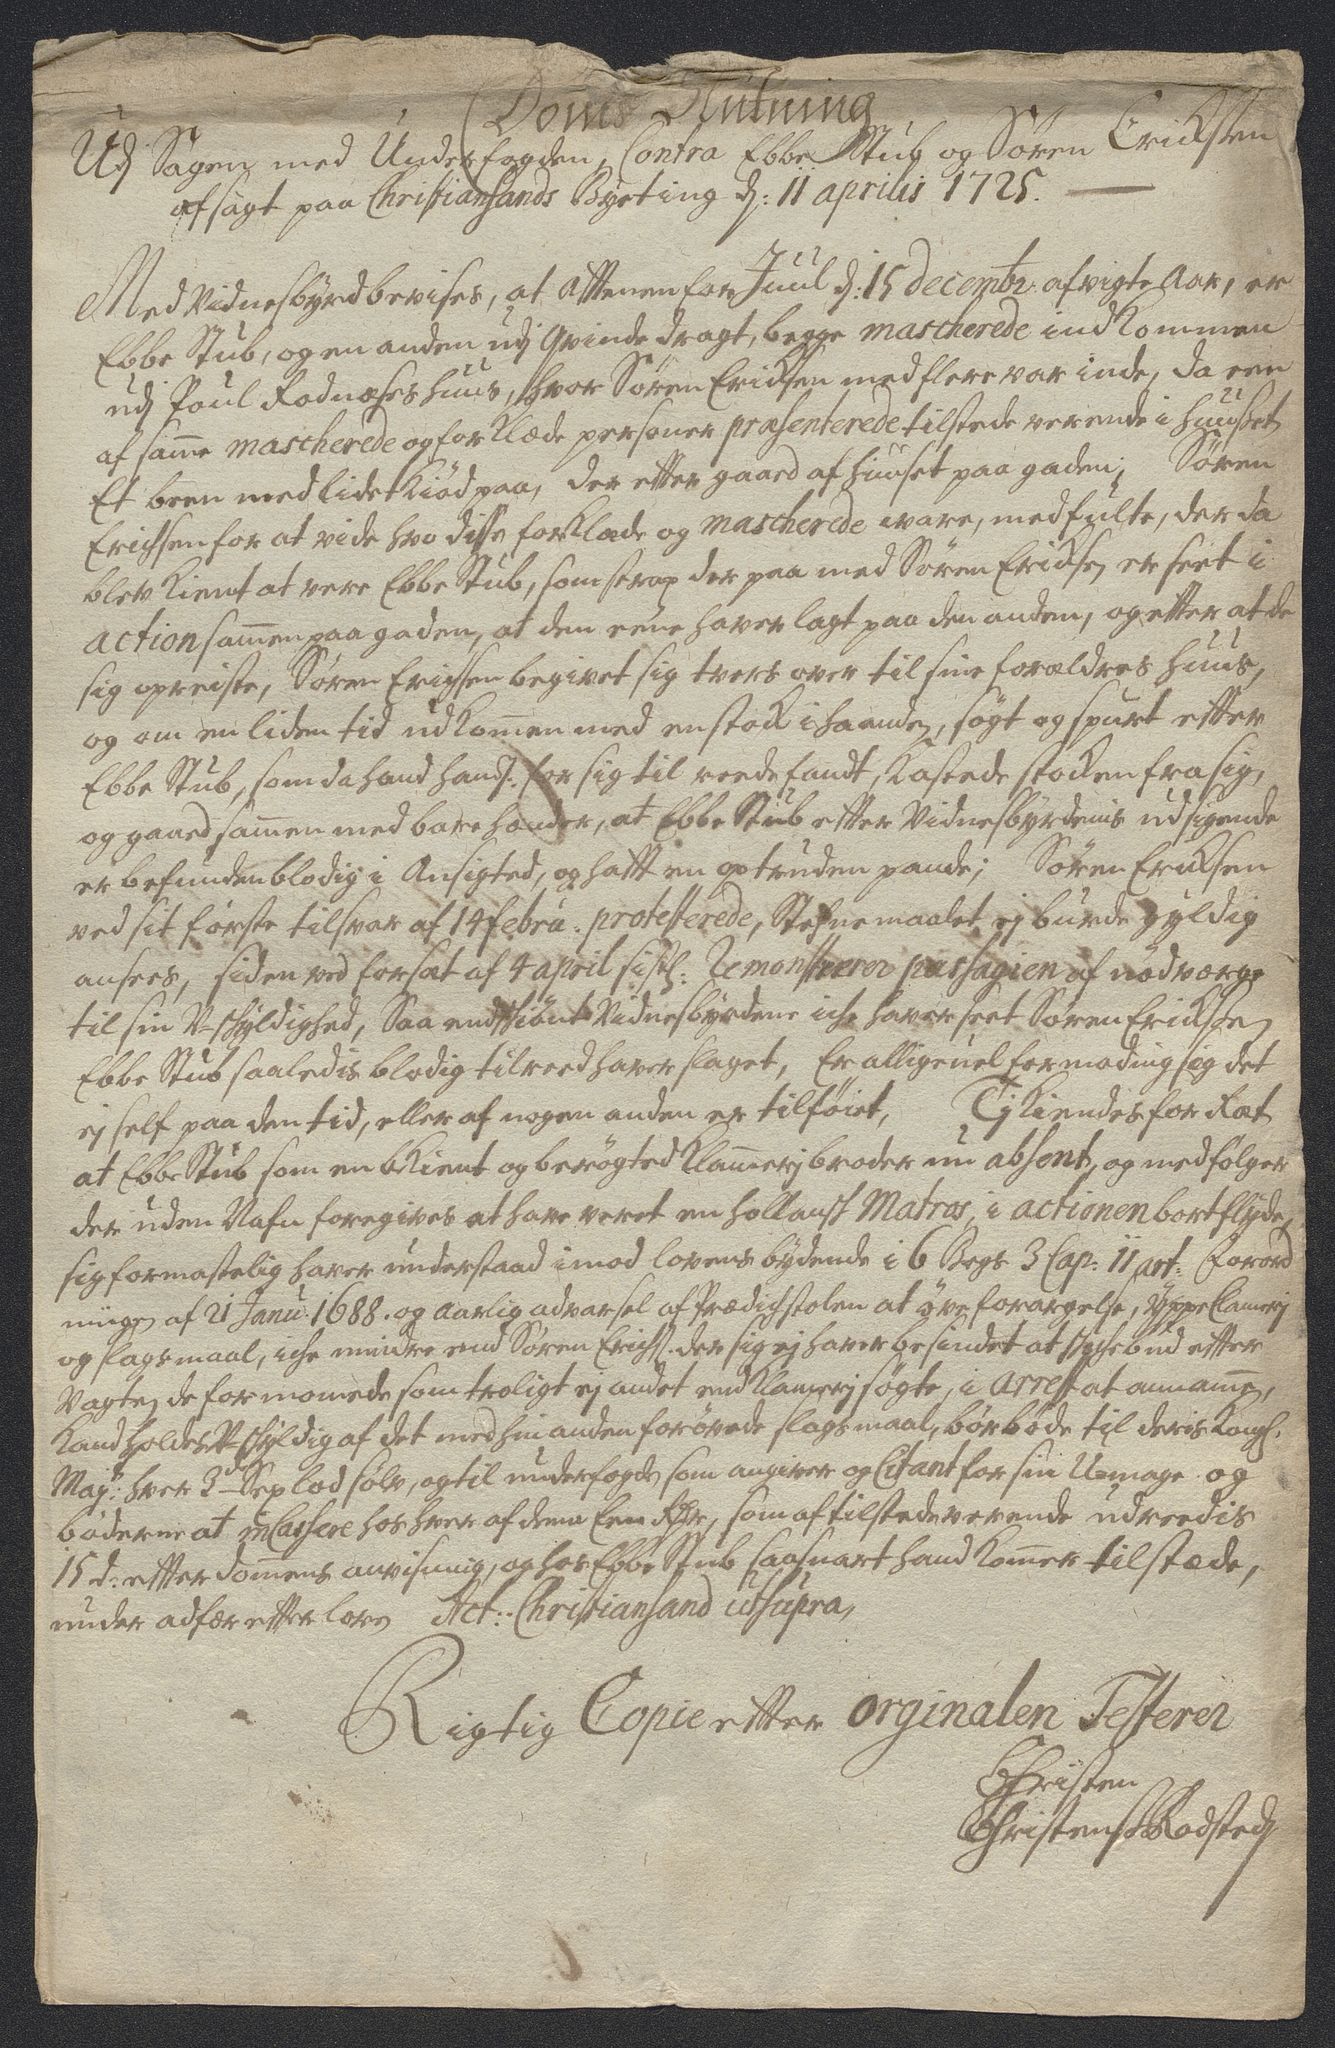 Doms Slutning
Udj Sagen med Underfogden, Contra Ebbe Stub og Søren Ericksen
afsagt paa Christiansands Byeting d: 11 aprilis 1725.
Med Vidnesbyrd bevises, at Afftenen for Juul d: 15 decembr: afvigte Aar, er
Ebbe Stub, og en anden udj Qvinde dragt, begge mascherede indkommen
udj Poul Rodnæses huus, hvor Søren Ericksen med flere var inde, da een
af samme mascherede og forklæde personer præsenterede tilstede verende i huuset
Et been med lidet Kiød paa, der effter gaaed af huuset paa gaden; Søren
Erichsen for at vide hvo disse forklæde og mascherede ware, medfulte, der da
blev kient at vere Ebbe Stub, som strax der paa med Søren Ericksen er seet i
action sammen paa gaden, at den eene haver lagt paa den anden, og effter at de
sig opreiste, Søren Erichsen begivet sig tvers over til sine forældres huus,
og om en liden tid udkommen med en stock i haanden, søgt og spurt effter
Ebbe Stub, som da hand hands: for sig til reede fandt, kastede stocken fra sig,
og gaaed sammen med bare hænder, at Ebbe Stub effter Vidnesbyrdenis udsigende
er befunden blodig i Ansigted, og hafft en optruden pande; Søren Ericksen
ved sit første tilsvar af 14 febru: protesterede, Stefnemaalet ej burde gyldig
ansees, siden ved forsæt af 4 april sistl: Remonstrerer passagien af nødværge
til sin U-skyldighed, Saa endskiønt Vidnesbyrdene iche haver seet Søren Ericksen
Ebbe Stub saaledis blodig tilreed haver slaget, Er alligeuel formoding sig det
ej self paa den tid, eller af nogen anden er tilføiet, Tj kiendes for Ræt
at Ebbe Stub som en bekient og berøgted Klammerj broder nu absent, og medfølger
der uden Nafn foregives at have veret en hollansk Matros, i actionen bortflyde,
sig formastelig haver understaad imod lovens bydende i 6 Bogs 3 Cap: 11 art: Forord
ningen af 21 Janu: 1688. og aarlig advarsel af Prædichstolen at øve forargelse, yppe Clamerj
og slagsmaal, iche mindre end Søren Erichs: der sig ej haver besindet at skiche bud effter
Vagten de formomede som troligt ej andet end klamerj søgte, i arrest at annamme,
kand holdes U-skyldig af det med hin anden forøvede slagsmaal, bør bøde til deris Kongl:
Mayt: hver 3de Sex lod sølv, og til underfogden som angiver og Citant for sin Umage og
bøderne at incassere hos hver af dem Een Rdr, som af tilstedeverende udreedis
15 d: effter dommens anvisning, og hos Ebbe Stub saasnart hand kommer tilstæde,
under adfær effter loven Act: Christiansand ut supra,
Rigtig Copie effter orginalen Testerer
Christen
Christensen Rodsted